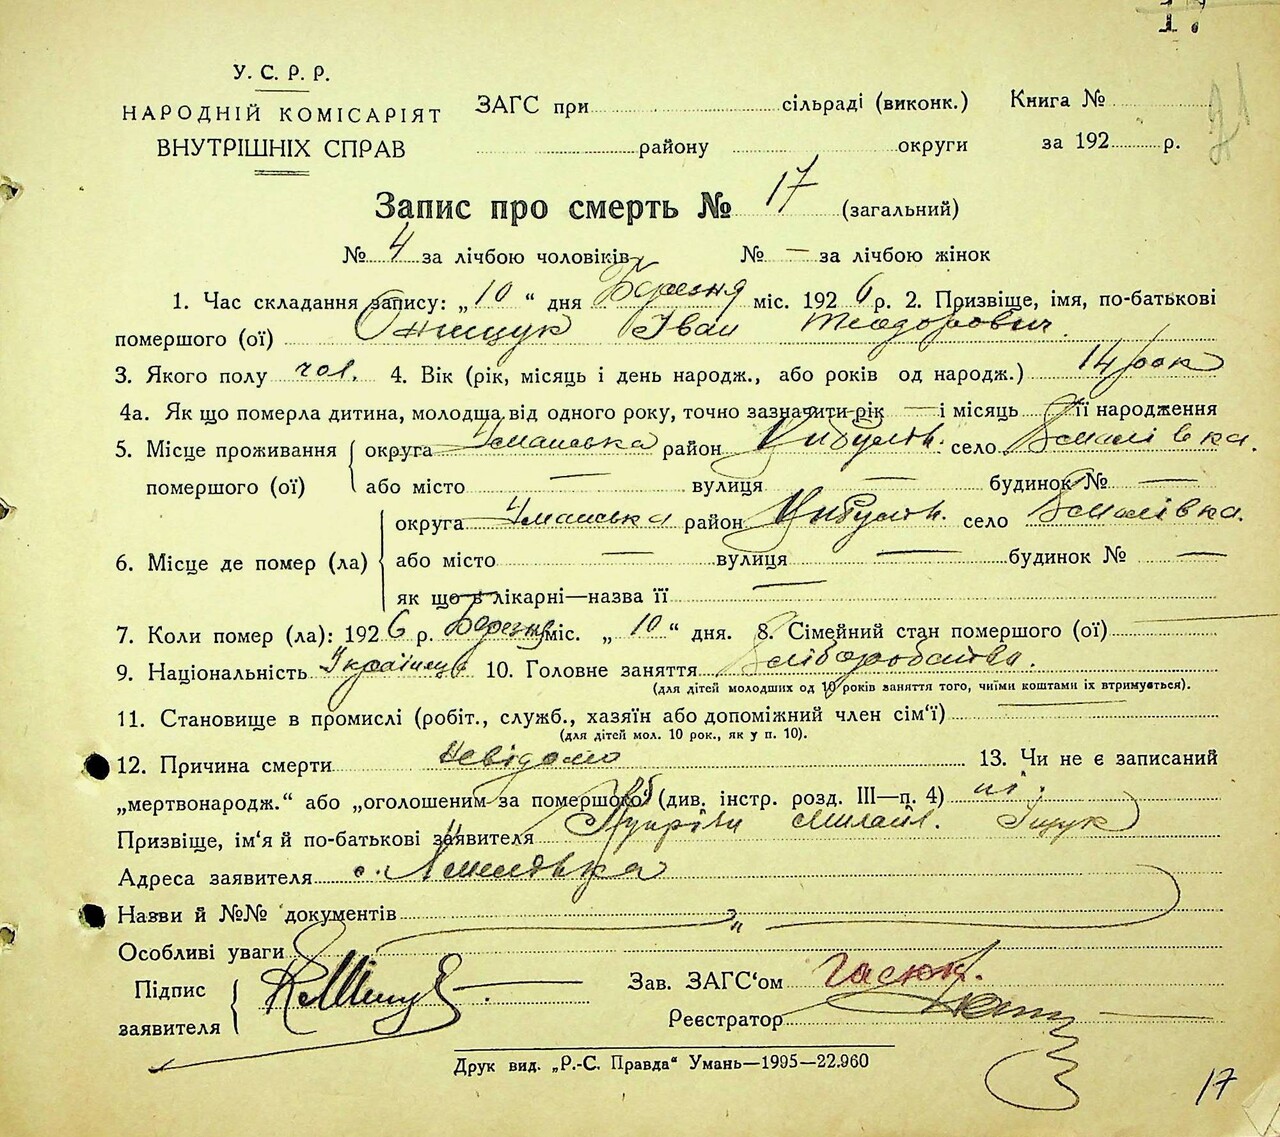 17
У. С. Р. Р.
НАРОДНІЙ КОМІСАРІЯТ
ВНУТРІШНІХ СПРАВ
ЗАГС при сільраді (виконк.) Книга №
21
району округи за 192 р.
Запис про смерть № 17 (загальний)
№ 4 за лічбою чоловіків № — за лічбою жінок
1. Час складання запису: „ 10 “ дня Березня міс. 1926 р. 2. Призвіще, імя, по-батькові
помершого (ої) Онищук Іван Теодорович.
3. Якого полу чол. 4. Вік (рік, місяць і день народж., або років од народж.) 14 рок
4а. Як що померла дитина, молодша від одного року, точно зазначити рік — і місяць її народження
5. Місце проживання округа Уманська район Цибулів. село
помершого (ої) або місто — вулиця — будинок № —
округа Уманська район Цибулів. село
6. Місце де помер (ла) або місто — вулиця — будинок № —
як що в лікарні—назва її —
7. Коли помер (ла): 1926 р. Березня міс. „ 10 “ дня. 8. Сімейний стан помершого (ої) —
9. Національність Українець 10. Головне заняття
(для дітей молодших од 10 років заняття того, чиїми коштами їх втримується).
11. Становище в промислі (робіт., служб., хазяїн або допоміжний член сім‘ї) —
(для дітей мол. 10 рок., як у п. 10).
12. Причина смерти невідомо 13. Чи не є записаний
„мертвонародж.“ або „оголошеним за помершого“ (див. інстр. розд. III—п. 4) ні.
Призвіще, ім‘я й по-батькові заявителя Іщук
Адреса заявителя с.
Назви й №№ документів „
Особливі уваги
Підпис
заявителя
Зав. ЗАГС‘ом Гасюк.
Реєстратор
Друк вид. „Р.-С. Правда“ Умань—1995—22.960
17